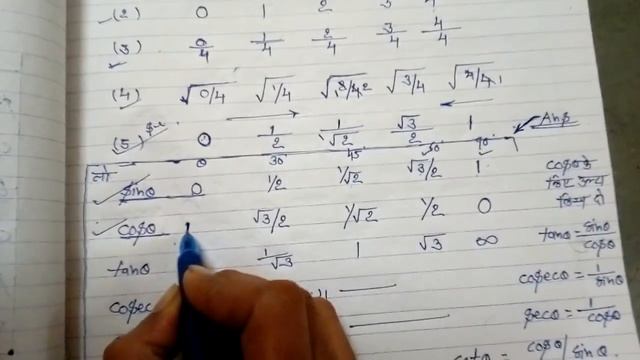 (2) 0 1 2 3 4
(3) 0/4 1/4 2/4 3/4 4/4
(4) √0/4 √1/4 √2/4 √3/4 √4/4
(5) 0 1/2 1/√2 √3/2 1 Ans
0 30 45 60 90
तो
sinθ 0 1/2 1/√2 √3/2 1
cosθ √3/2 1/√2 1/2 0
tanθ 1/√3 1 √3 ∞ tanθ = sinθ/cosθ
cosec cosecθ = 1/sinθ
secθ = 1/cosθ
cotθ = cosθ/sinθ